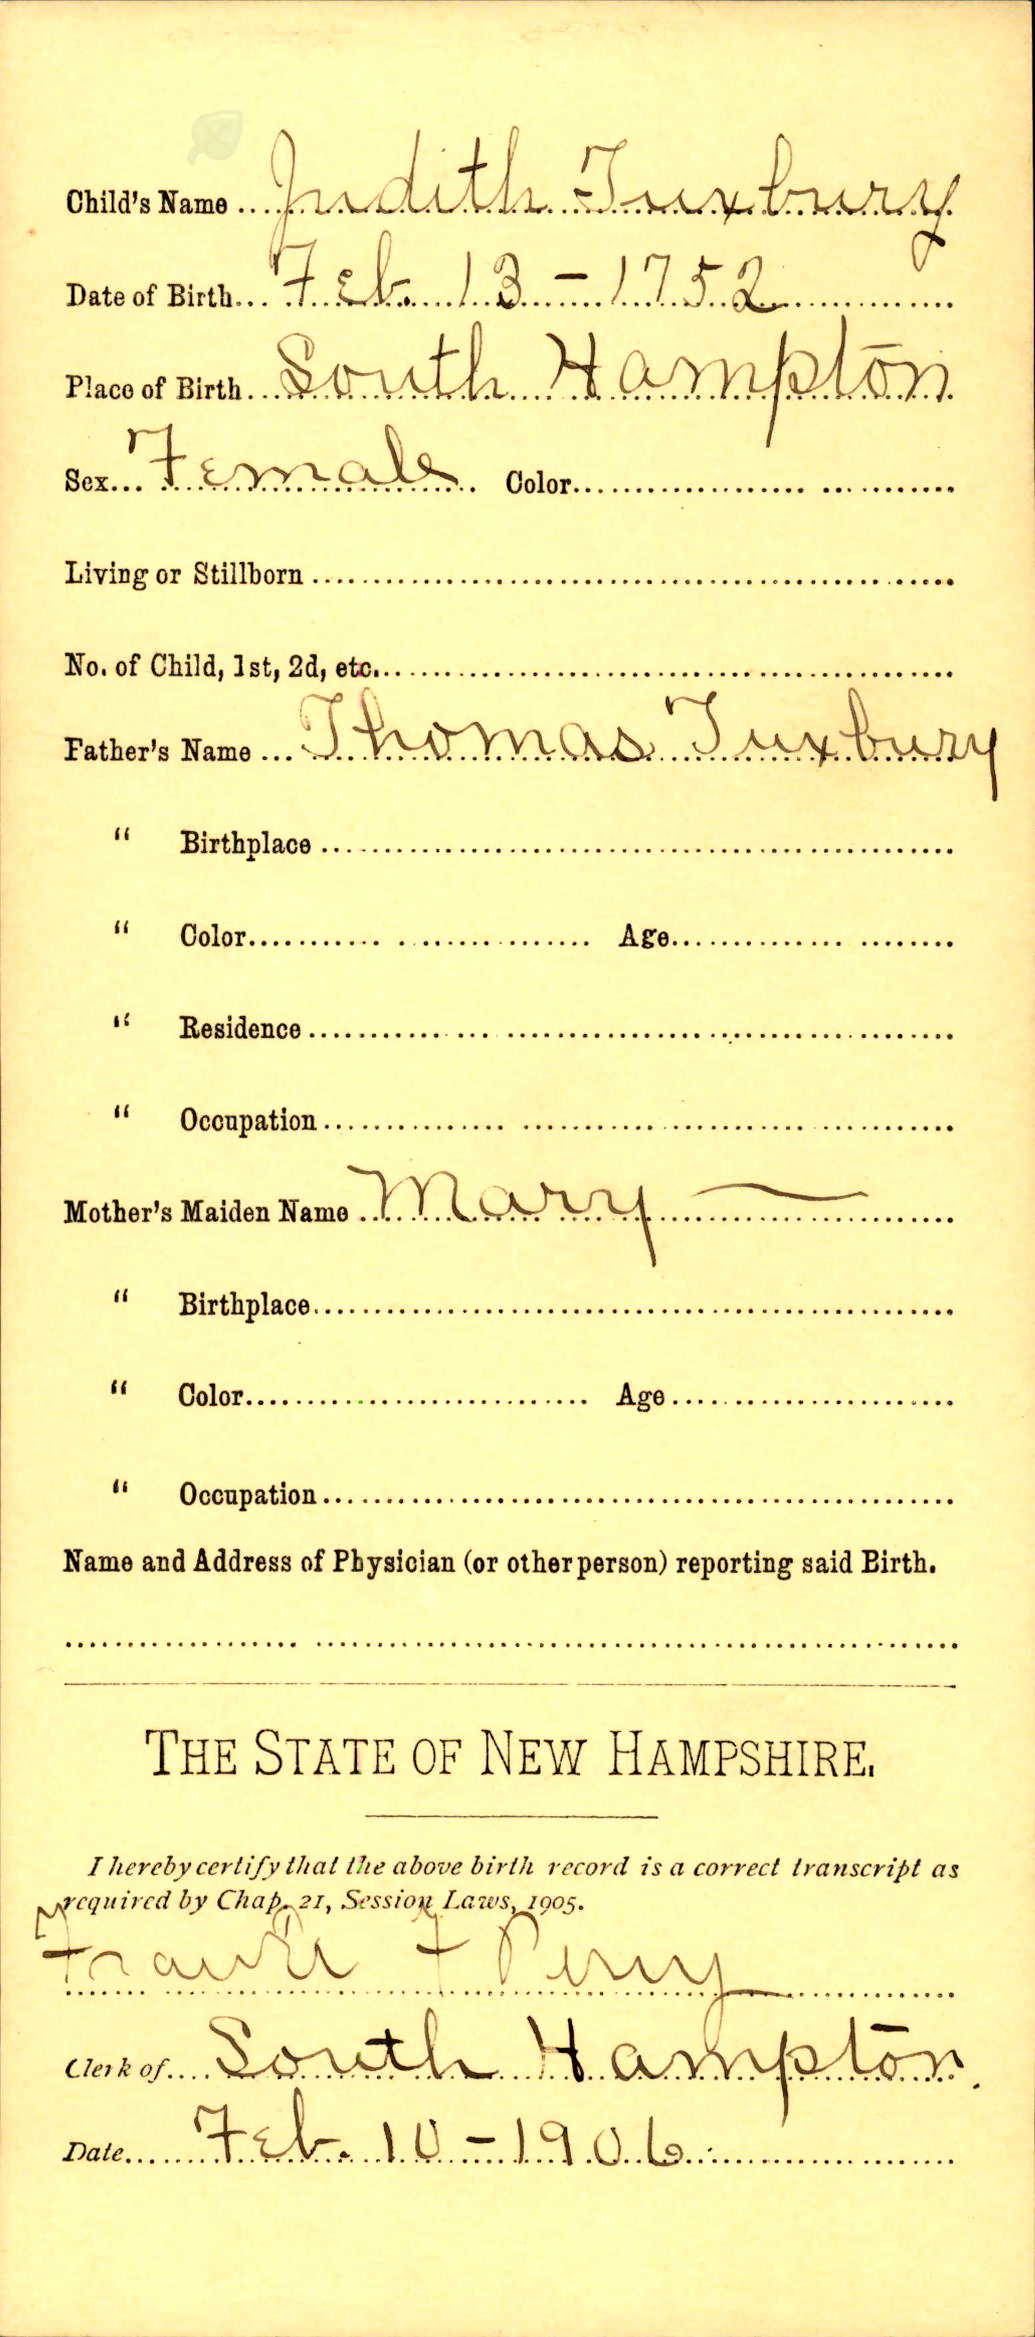 Child's Name Judith Tuxbury
Date of Birth Feb. 13 - 1752
Place of Birth South Hampton
Sex Female Color
Living or Stillborn
No. of Child, 1st, 2d, etc.
Father's Name Thomas Tuxbury
" Birthplace
" Color Age
" Residence
" Occupation
Mother's Maiden Name Mary —
" Birthplace
" Color Age
" Occupation
Name and Address of Physician (or other person) reporting said Birth.
THE STATE OF NEW HAMPSHIRE.
I hereby certify that the above birth record is a correct transcript as
required by Chap. 21, Session Laws, 1905.
Frank F Perry
Clerk of South Hampton.
Date Feb. 10 - 1906